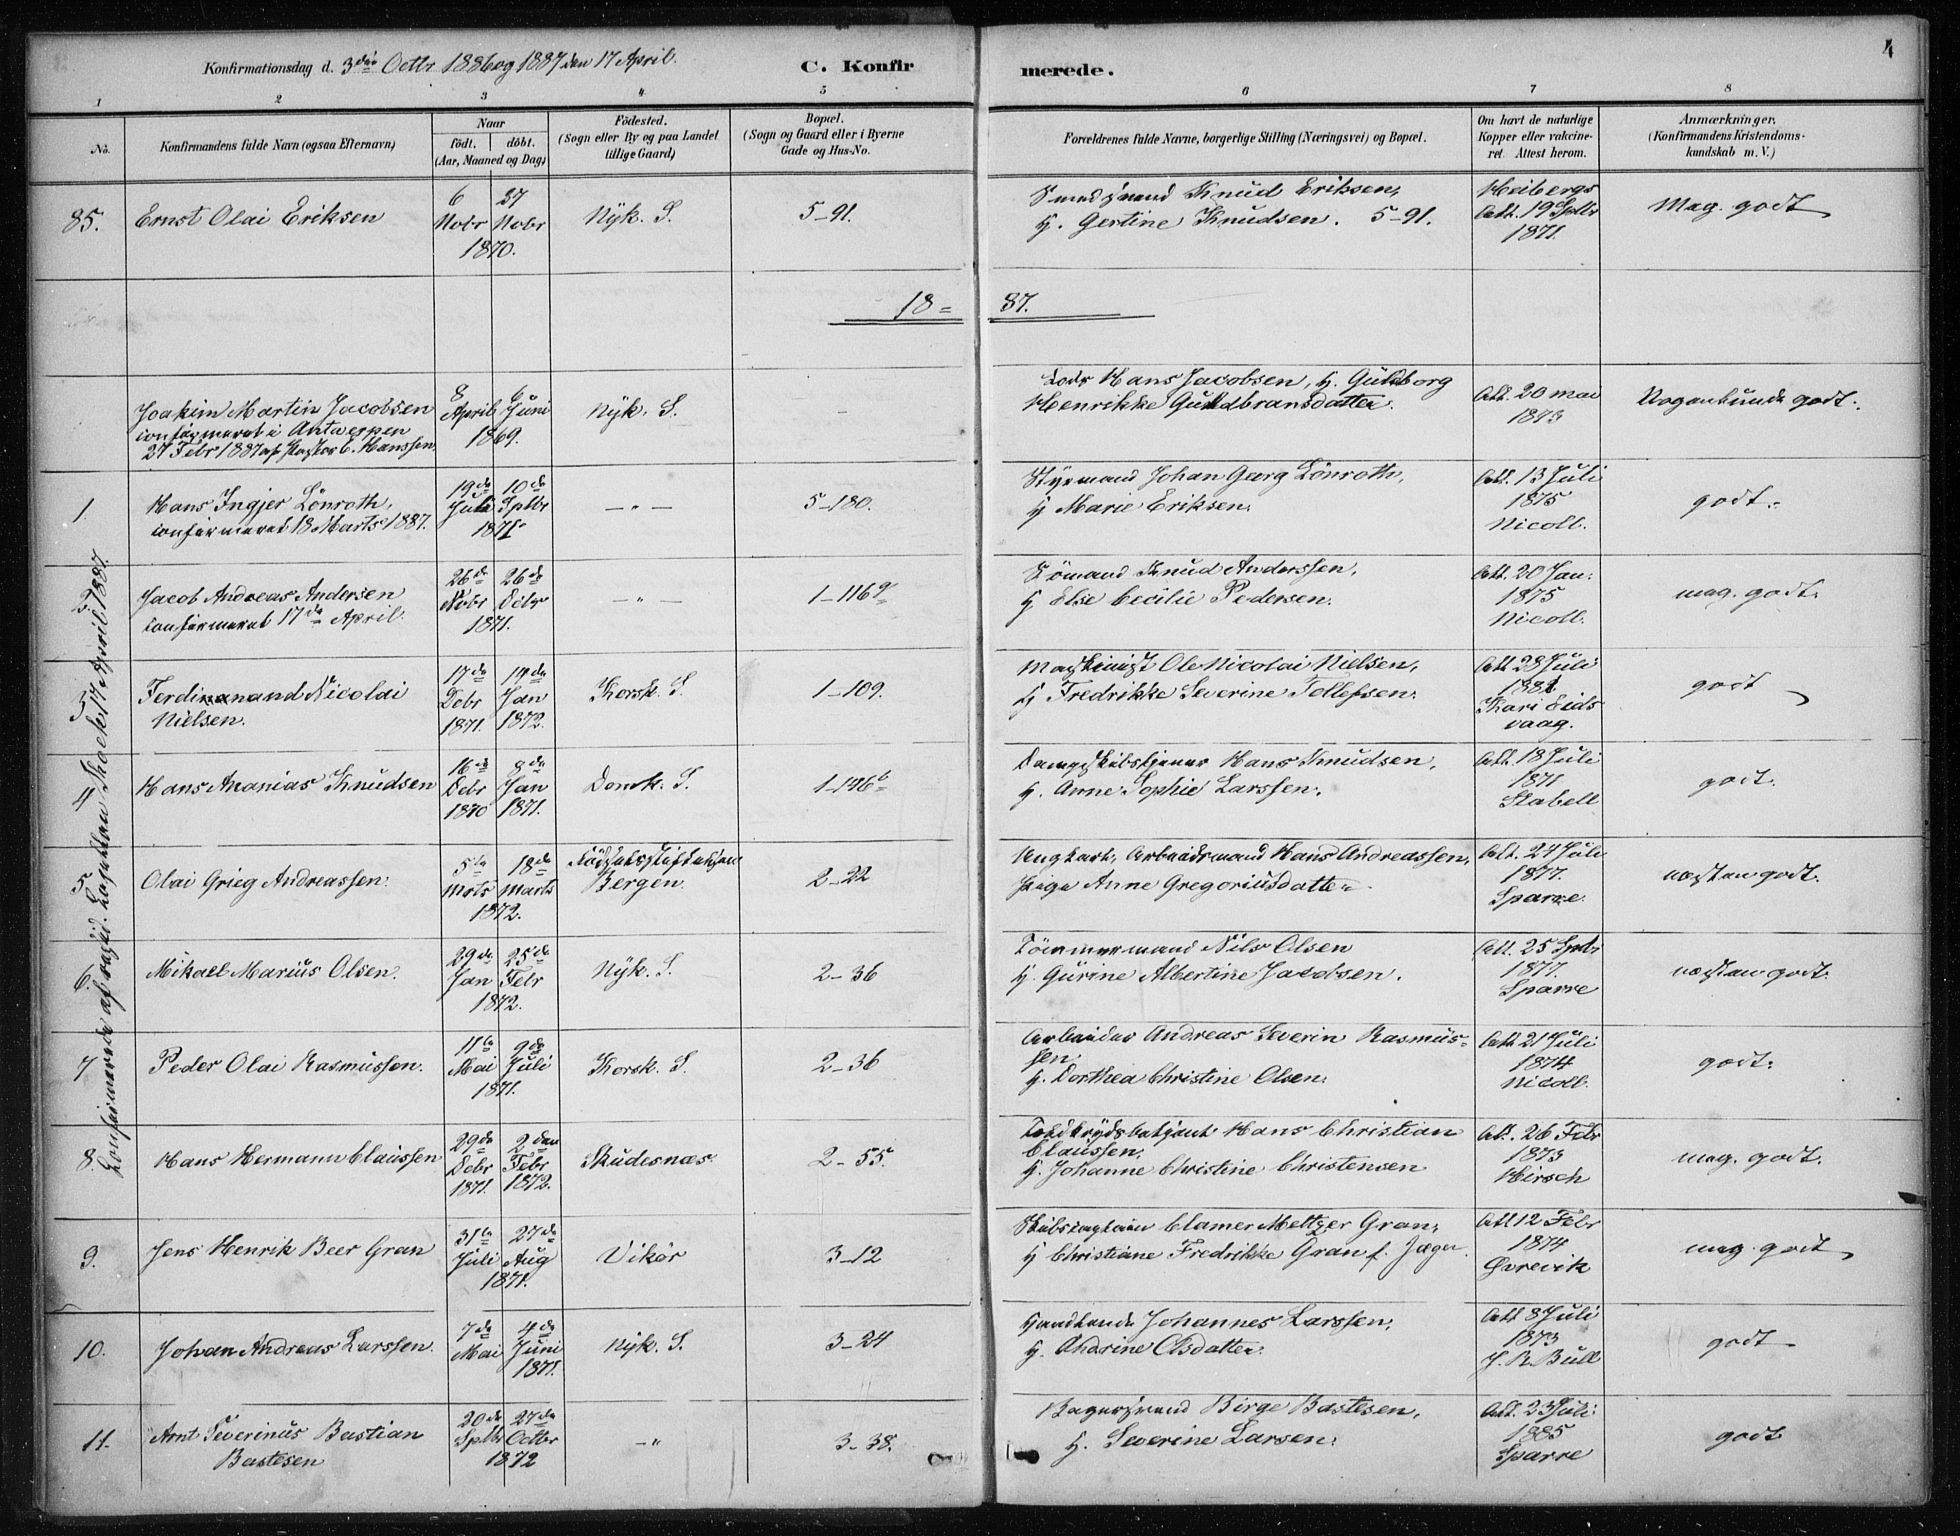 Konfirmationsdag d. 3die Octbr 1886 og 1887 den 17 April.
C. Konfirmerede.
4
1 2 3 4 5 6 7 8
No.
Konfirmandens fulde Navn (ogsaa Efternavn)
Naar
födt. döbt.
(Aar, Maaned og Dag)
Födested.
(Sogn eller By og paa Landet
tillige Gaard)
Bopæl.
(Sogn og Gaard eller i Byerne
Gade og Hus-No.
Forældrenes fulde Navne, borgerlige Stilling (Næringsvei) og Bopæl.
Om havt de naturlige
Kopper eller vakcine-
ret. Attest herom.
Anmærkninger.
(Konfirmandens Kristendoms-
kundskab m. V.)
85.
Ernst Olai Eriksen
6 Nobr 27 Nobr
1870.
Nyk. S.
5-91.
Knud Eriksen,
H. Gertine Knudsen. 5-91.
Heibergs
Att. 19 Sptbr
1871.
Mag. godt
18= 87.
Joakim Martin Jacobsen
confirmeret i Antwerpen
27 Febr 1887 af Pastor C. Hanssen.
8 April 6 Juni
1869.
Nyk. S.
-
Lods Hans Jacobsen, H. Guldborg
Henrikke Guldbransdatter.
Att. 20 mai
1873
godt.
1.
Hans Ingjer Lönroth,
confirmeret 18 Marts 1887.
19de Juli 10de Sptbr
1871.
- " -
5-180.
Styrmand Johan Georg Lönroth,
H Marie Eriksen.
Att. 13 Juli
1875
Nicoll.
godt.
2
Jacob Andreas Andersen
confirmeret 17de April.
26de Nobr 26de Debr
1871.
- " -
1-116a
Sömand Knud Anderssen,
H Else Cecilie Pedersen.
Att. 20 Jan:
1875
Nicoll.
mag. godt.
Konfirmerede af resid. Kapellan Skaar 17 April 1887.
3
Ferdinanand Nicolai
Nielsen.
17de Debr 1871. 14de Jan 1872.
Korsk. S.
1-109.
Maskinist Ole Nicolai Nielsen,
H Fredrikke Severine Tollefsen.
Att. 28 Juli
1881
Kari Eids
vaag.
godt
4
Hans Ananias Knudsen
16de Debr 1870 8de Jan 1871.
Domk. S.
1-146b
Dampskibstjener Hans Knudsen,
H. Anne Sophie Larssen.
Att. 18 Juli
1871
Stabell
godt.
5
Olai Grieg Andreassen.
5te Marts 18de Marts
1872.
Födselsstiftelsen
Bergen.
2-22
Ungkarl, Arbeidsmand Hans Andreassen,
Pige Anne Gregoriusdatter
Att. 24 Juli
1877.
Sparre.
næsten godt.
6.
Mikael Marius Olsen.
29de Jan 25de Febr
1872.
Nyk. S.
2-36
Tömmermand Nils Olsen
H. Gürine Albertine Jacobsen.
Att. 25 Sptbr
1877.
Sparre
næsten godt.
7
Peder Olai Rasmussen.
11te Mai 9de Juli
1871.
Korsk. S.
2-36
Arbeider Andreas Severin Rasmus-
sen,
H. Dorthea Christine Olsen.
Att. 21 Juli
1874
Nicoll.
godt.
8.
Hans Hermann Claussen
29de Debr 1871. 2den Febr 1872.
Skudesnæs.
2-55.
Toldkrydsbetjent Hans Christian
Claussen,
H. Johanne Christine Christensen
Att. 26 Febr
1873
Hirsch
mag. godt.
9.
Jens Henrik Beer Gran
31te Juli 27de Aug
1871.
Vikör
3-12
Skibscaptein Clamer Meltzer Gran,
H Christiane Fredrikke Gran f. Jæger.
Att 12 Febr
1874
Övrevik
mag. godt
10.
Johan Andreas Larssen.
7de Mai 4de Juni
1871.
Nyk. S.
3-24
Handlende Johannes Larssen,
H. Andrine Olsdatter.
Att 8 Juli
1873
J. R. Bull
godt
11.
Arnt Severinus Bastian
Bastesen
20de Sptbr 27de Octbr
1872
- "
3-38.
Bagersvend Birge Bastesen,
H. Severine Larsen.
Att. 23 Juli
1885
Sparre
godt